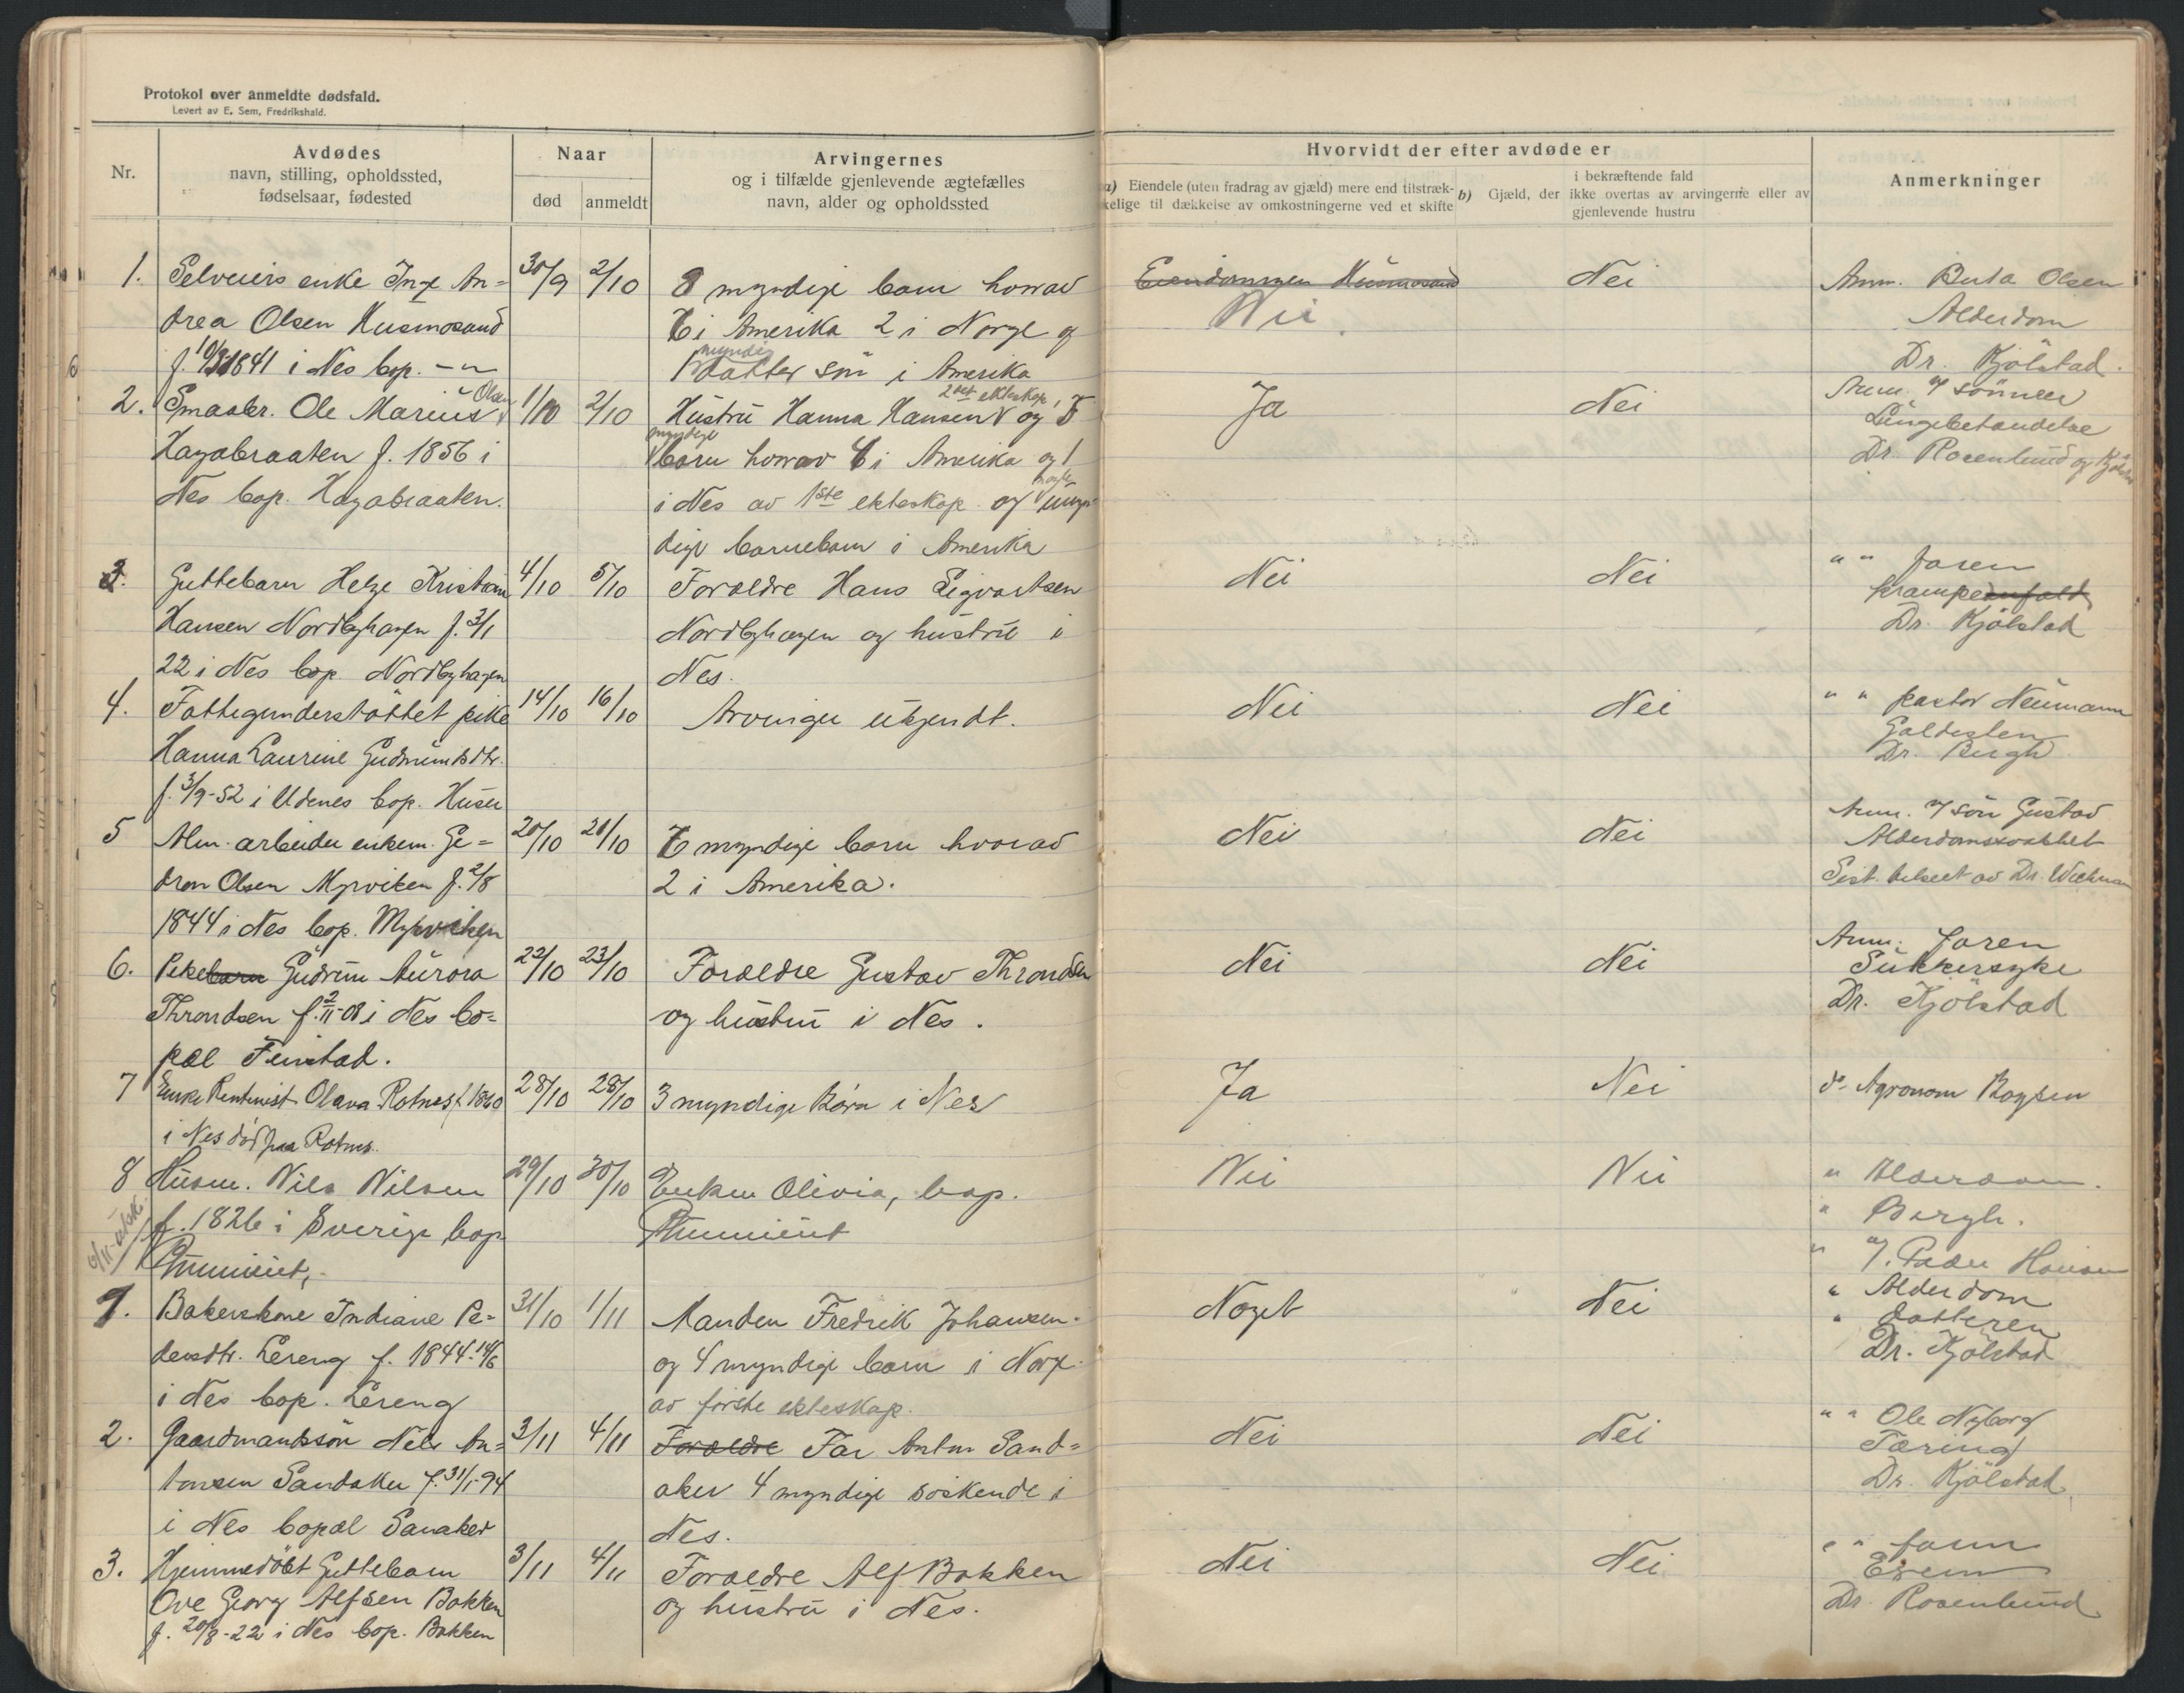 Protokol over anmeldte dødsfald.
Levert av E. Sem, Fredrikshald.
Nr.
Avdødes
navn, stilling, opholdssted,
fødselsaar, fødested
Naar
død
anmeldt
Arvingernes
og i tilfælde gjenlevende ægtefælles
navn, alder og opholdssted
Hvorvidt der efter avdøde er
a) Eiendele (uten fradrag av gjæld) mere end tilstræk-
kelige til dækkelse av omkostningerne ved et skifte
i bekræftende fald
b) Gjæld, der ikke overtas av arvingerne eller av
gjenlevende hustru
Anmerkninger
1. Selveiers enke Inge An=
drea Olsen Husmosand
1841 i Nes bop. - " -
30/9 2/10
8 myndige barn hvorav
i Amerika 2 i Norge og
1 myndig datter søn i Amerika
Eiendommen Husmosand
Nei
Nei
Anm. Berta Olsen
Alderdom
Dr. Kjölstad.
2. Smaabr. Ole Marius Olsen
Hagabraaten f. 1856 i
Nes bop. Hagabraaten.
1/10 2/10
Hustru Hanna Hansen og
2det ekteskap
myndige
barn hvorav i Amerika og 1
i Nes av 1ste ekteskap og nogle umyn=
dige barnebarn i Amerika
Ja
Nei
Anm. af sønnen
Lungebetændelse
Dr. Rosenlund og Kjølstad
3. Guttebarn Helge Kristian
Hansen Nordbyhagen f. 3/1
22 i Nes bop. Nordbyhagen
4/10 5/10
Forældre Hans Sigvartsen
Nordbyhagen og hustru i
Nes.
Nei
Nei
" " faren
krampeanfald
Dr. Kjölstad
4. Fattigunderstöttet pike
Hanna Laurine Gudmundsdtr.
f. 3/9-52 i Udenes bop. Huser
14/10 16/10
Arvinger ukjendt.
Nei
Nei
" " pastor Neumann
Galdesten
Dr. Bergh
5 Alm. arbeider enkem. Ge=
dron Olsen Myrviken f. 2/8
1844 i Nes bop. Myrviken
20/10 21/10
myndige barn hvorav
2 i Amerika.
Nei
Nei
Anm. af sön Gustav
Alderdomssvakhet
Sist tilseet av Dr.
6. Pikebarn Gudrun Aurora
Throndsen f. 2/11-08 i Nes bo=
pæl Fenstad.
22/10 23/10
Forældre Gustav Throndsen
og hustru i Nes.
Nei
Nei
Anm. faren
Sukkersyke
Dr. Kjölstad
7 Enke Rentenist Olava Rotnes f. 1840
i Nes död paa Rotnes.
28/10 28/10
3 myndige Börn i Nes
Ja
Nei
do. Agronom Boysen
8 Husm. Nils Nilsen
f. 1826 i Sverige bop.
29/10 30/10
Enken Olivia, bop.
Nei
Nei
" Alderdom.
" Bergh.
" af. Peder Hansen
9. Bakerskone Indiane Pe=
dersdtr. Lereng f. 1844 14/6
i Nes bop. Lereng
31/10 1/11
Manden Fredrik Johansen.
og 4 myndige barn i Norge
av förste ekteskap.
Noget
Nei
" Alderdom
" datteren
Dr. Kjölstad
2. Gaardmandssön Nils An=
tonsen Sandaker f. 31/1-94
i Nes bopæl Sanaker
3/11 4/11
Forældre Far Anton Sand=
aker 4 myndige söskende i
Nes.
Nei
Nei
" " Ole Nyborg
Tæring
Dr. Kjölstad.
3. Hjemmedöbt Guttebarn
Ove Georg Alfsen Bakken
f. 20/8-22 i Nes bop. Bakken
3/11 4/11
Forældre Alf Bakken
og hustru i Nes.
Nei
Nei
" " faren
Dr. Rosenlund